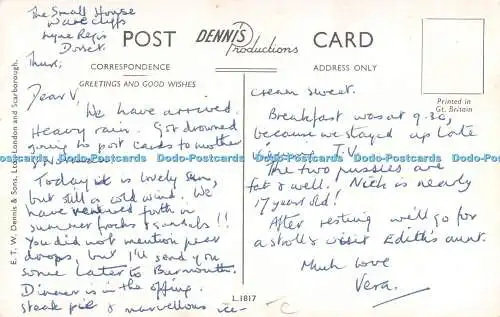 The Small House
Ware Cliffs
Lyme Regis
Dorset.
Thurs;
POST DENNIS Productions CARD
CORRESPONDENCE
ADDRESS ONLY
GREETINGS AND GOOD WISHES
Printed in
Gt. Britain
E. T. W. Dennis & Sons, Ltd., London and Scarborough.
Dear V,
We have arrived.
Heavy rain. Got drowned
going to post cards to mother
& N
Today it is lovely sun,
but still a cold wind. We
have ventured forth in
summer frocks & sandals!!
You did not mention pear
drops, but I'll send you
some later to Barmouth.
Dinner is in the offing.
steak pie & marvellous ice-
cream sweet.
Breakfast was at 9.30,
because we stayed up late
viewing T.V.
The two pussies are
fat & well! Nick is nearly
17 years old!
After resting we'll go for
a stroll & visit Edith's aunt.
Much love
Vera.
L.1817
C
Dodo-Postcards Dodo-Postcards Dodo-Postcards Dodo-Postcards Dodo-Postcards Dodo-Postcards